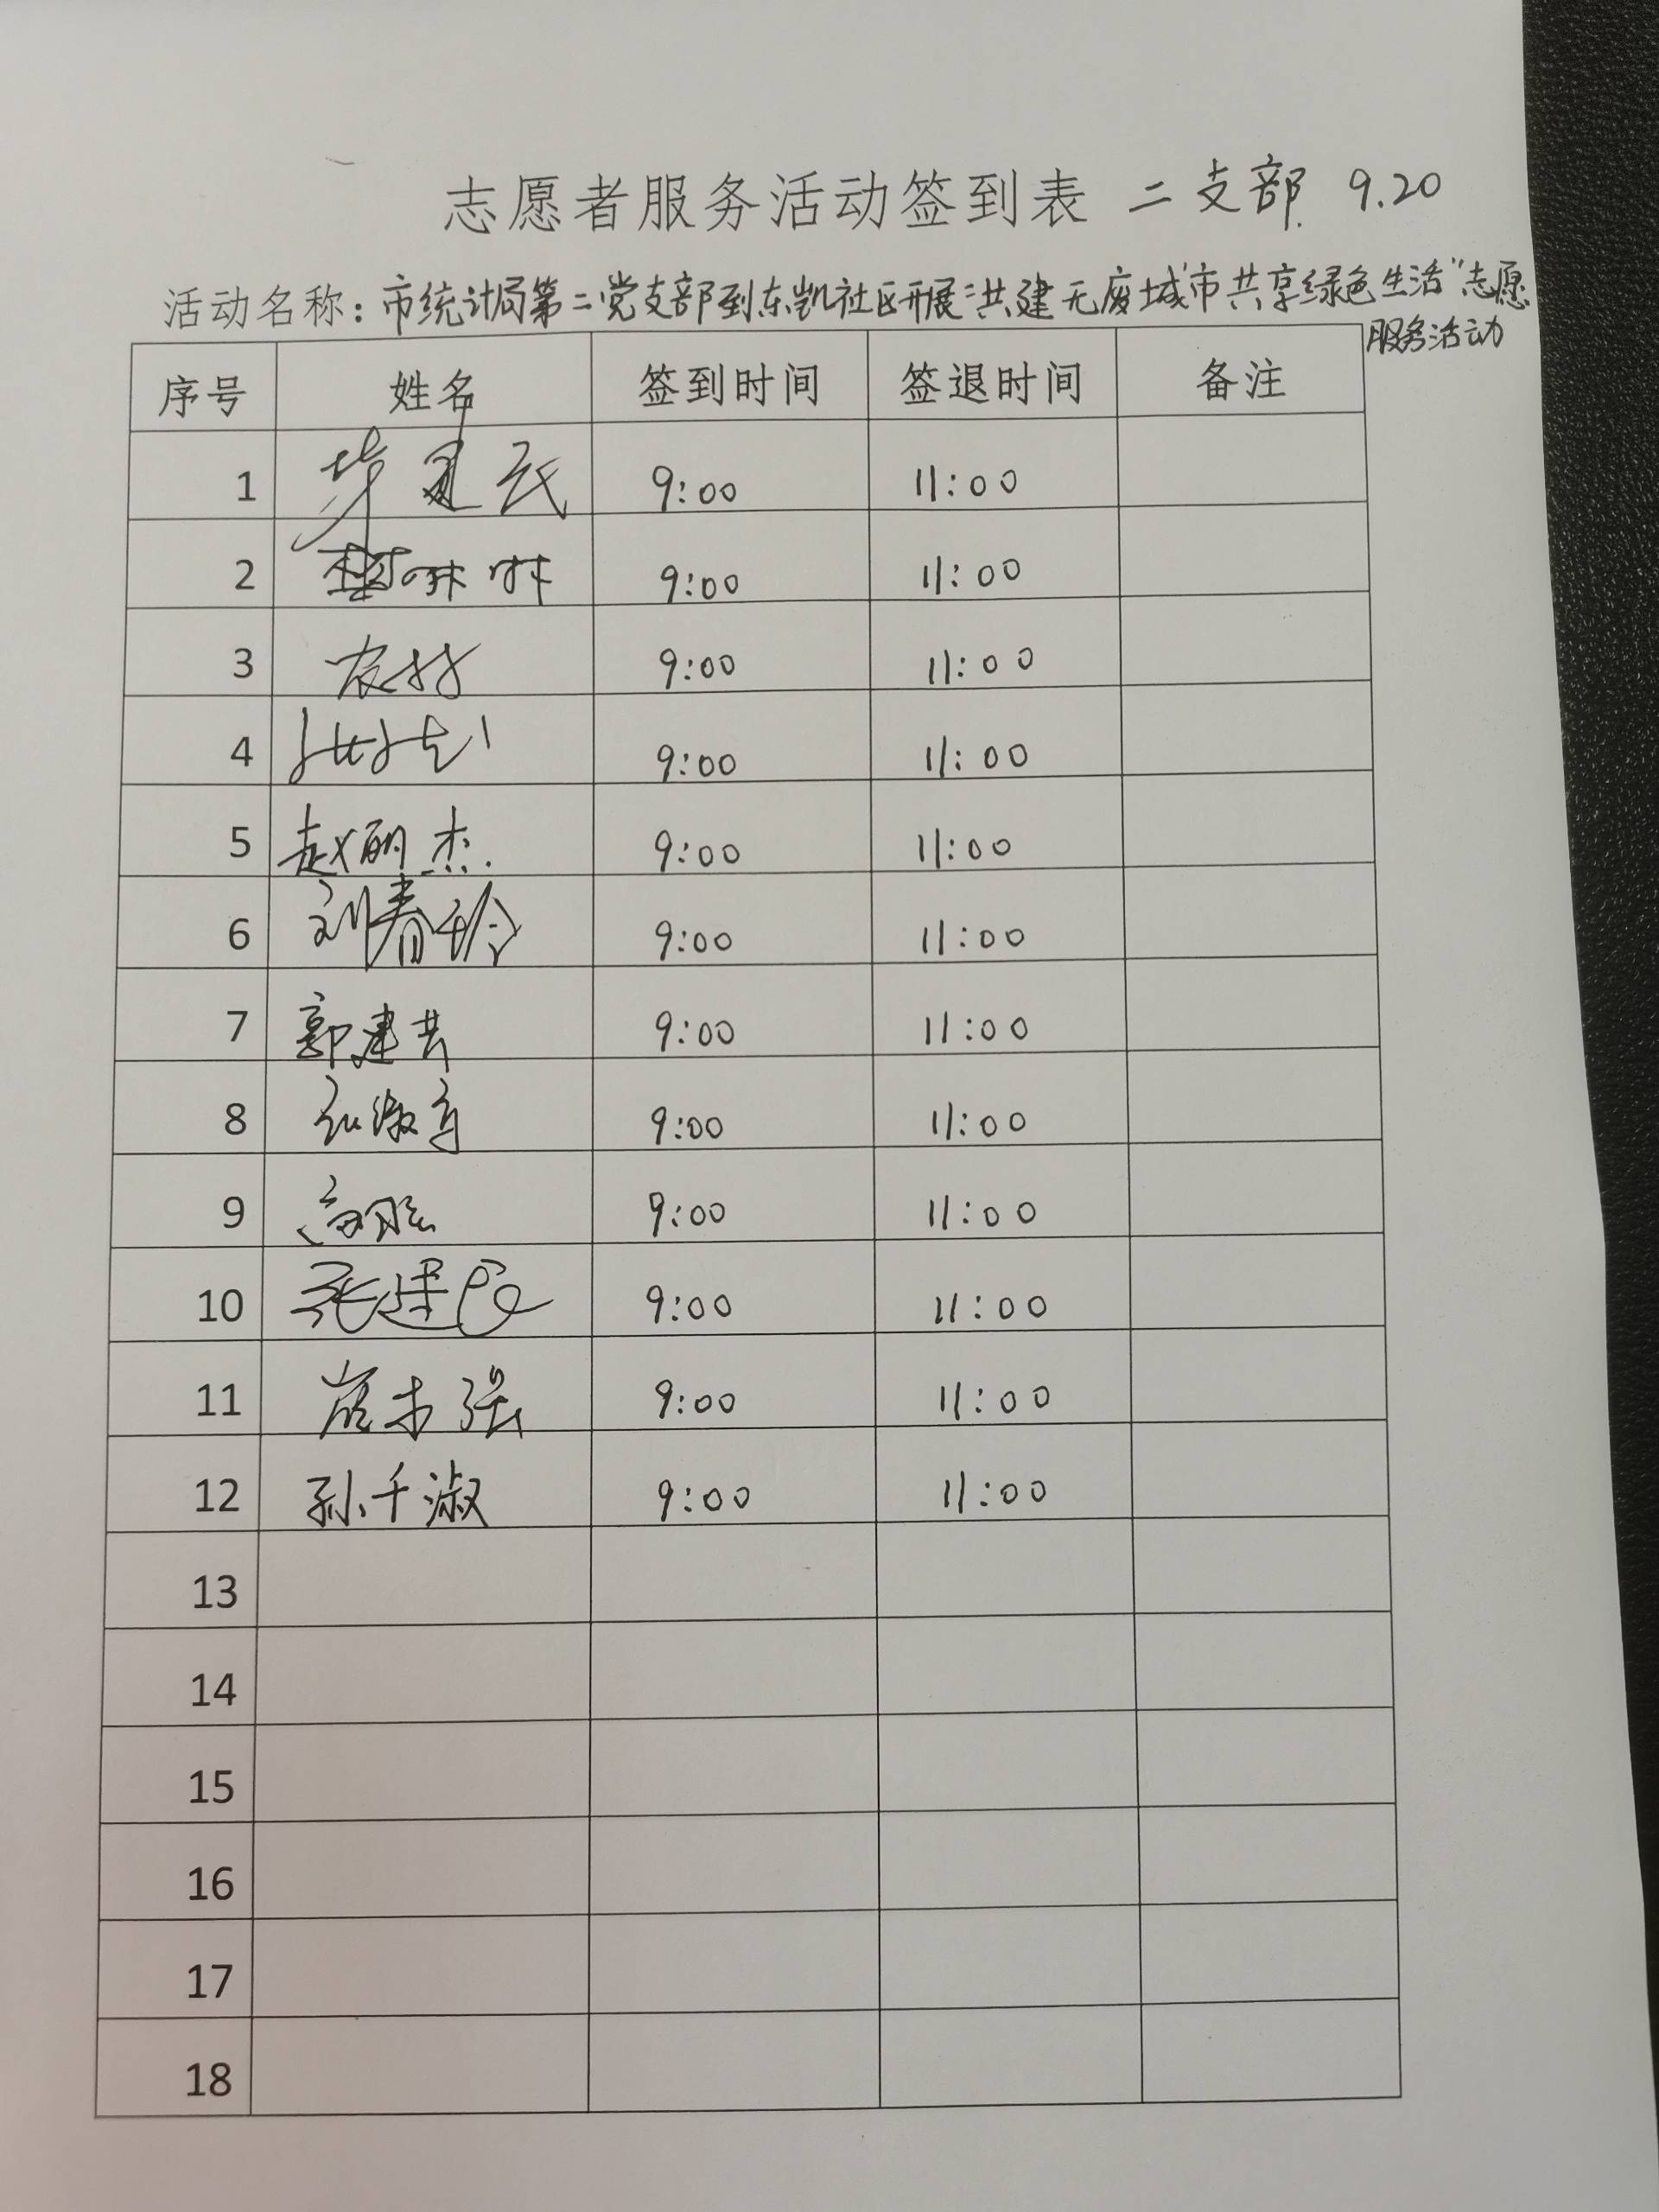 志愿者服务活动签到表 二支部 9.20
活动名称：市统计局第二党支部到东凯社区开展“共建无废城市共享绿色生活”志愿
服务活动
序号 姓名 签到时间 签退时间 备注
1 9:00 11:00
2 9:00 11:00
3 9:00 11:00
4 9:00 11:00
5 赵丽杰 9:00 11:00
6 刘春玲 9:00 11:00
7 郭建共 9:00 11:00
8 9:00 11:00
9 9:00 11:00
10 9:00 11:00
11 9:00 11:00
12 孙千淑 9:00 11:00
13
14
15
16
17
18